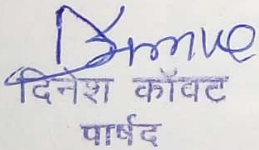 दिनेश कॉवट
पार्षद